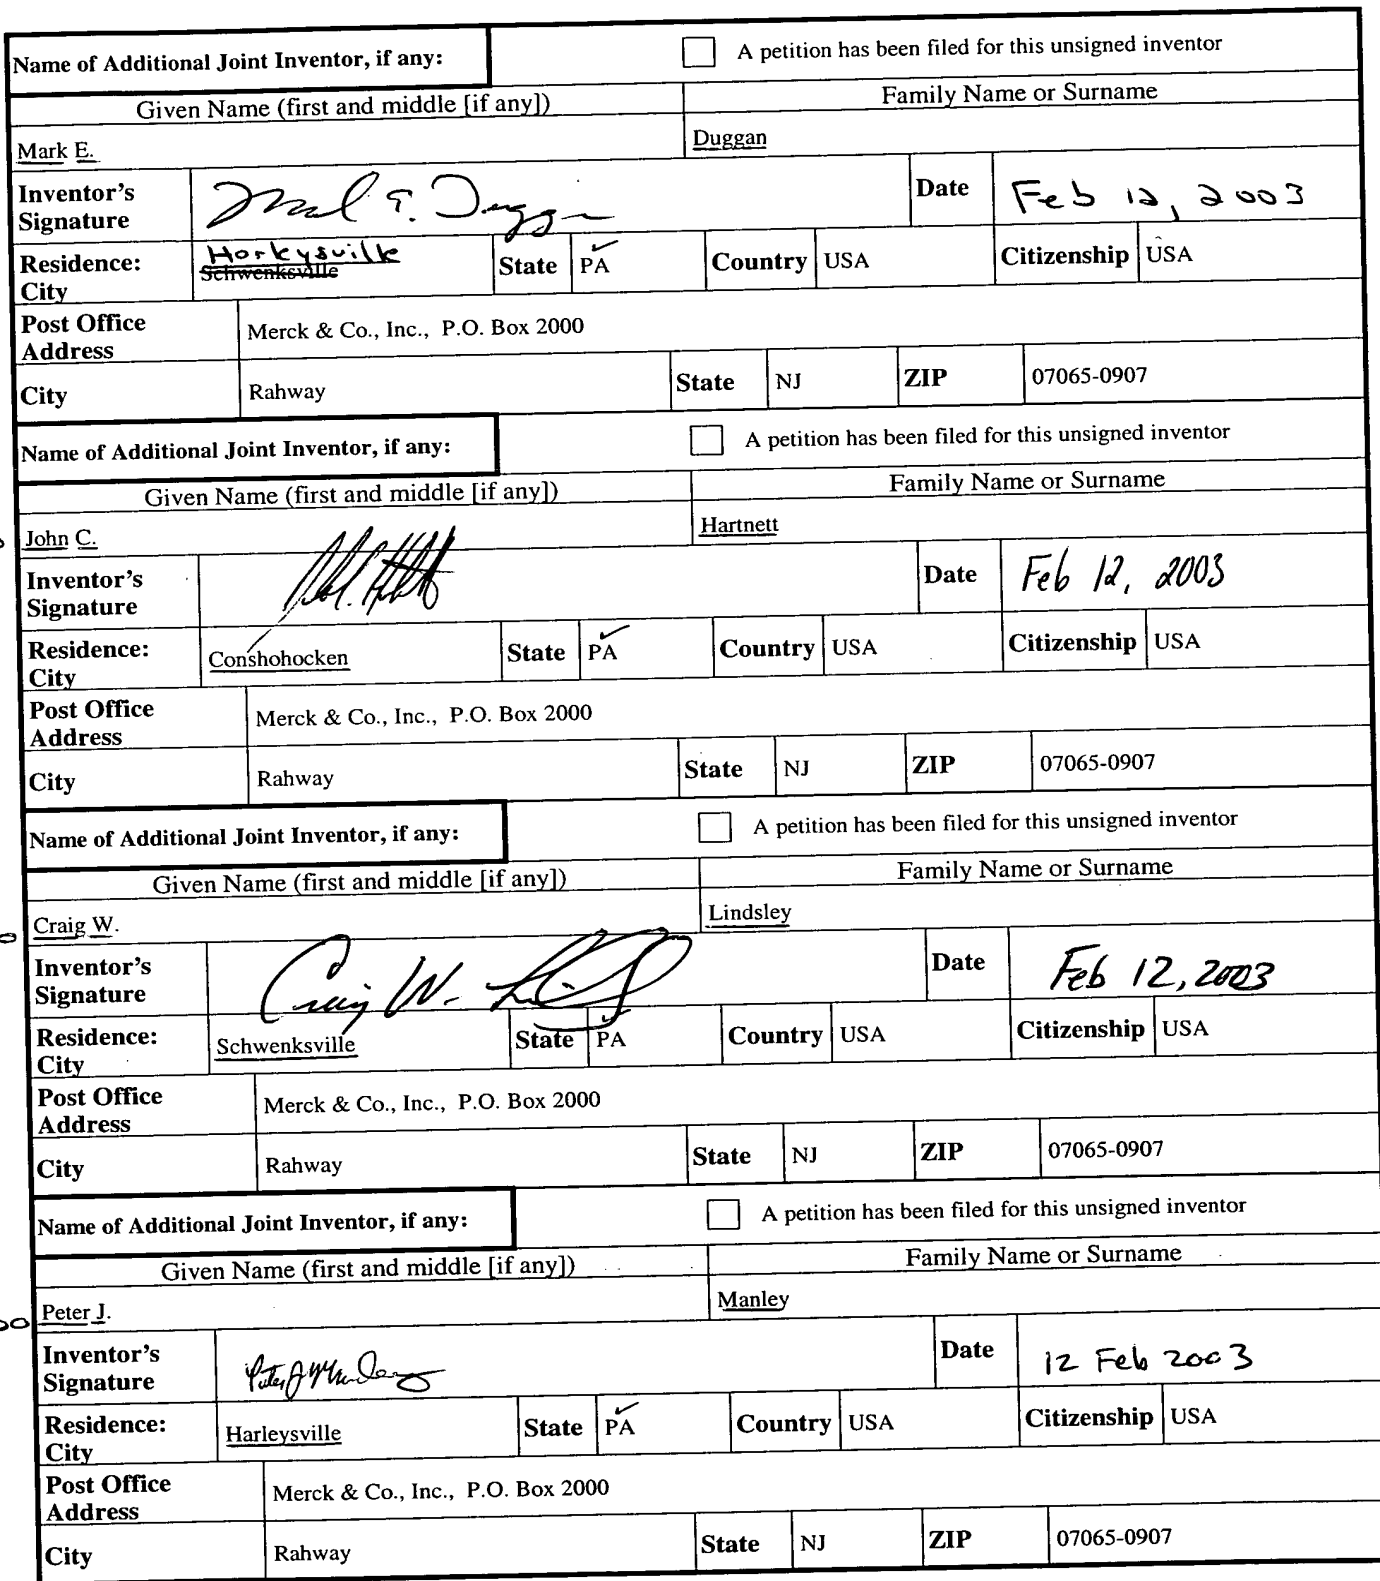 Name of Additional Joint Inventor, if any: A petition has been filed for this unsigned inventor
Given Name (first and middle [if any]) Family Name or Surname
Mark E. Duggan
Inventor's Signature Mark E. Duggan Date Feb 12, 2003
Residence: City Horkysville Schwenksville State PA Country USA Citizenship USA
Post Office Address Merck & Co., Inc., P.O. Box 2000
City Rahway State NJ ZIP 07065-0907
Name of Additional Joint Inventor, if any: A petition has been filed for this unsigned inventor
Given Name (first and middle [if any]) Family Name or Surname
John C. Hartnett
Inventor's Signature Date Feb 12, 2003
Residence: City Conshohocken State PA Country USA Citizenship USA
Post Office Address Merck & Co., Inc., P.O. Box 2000
City Rahway State NJ ZIP 07065-0907
Name of Additional Joint Inventor, if any: A petition has been filed for this unsigned inventor
Given Name (first and middle [if any]) Family Name or Surname
Craig W. Lindsley
Inventor's Signature Craig W. Date Feb 12, 2003
Residence: City Schwenksville State PA Country USA Citizenship USA
Post Office Address Merck & Co., Inc., P.O. Box 2000
City Rahway State NJ ZIP 07065-0907
Name of Additional Joint Inventor, if any: A petition has been filed for this unsigned inventor
Given Name (first and middle [if any]) Family Name or Surname
Peter J. Manley
Inventor's Signature Peter J Manley Date 12 Feb 2003
Residence: City Harleysville State PA Country USA Citizenship USA
Post Office Address Merck & Co., Inc., P.O. Box 2000
City Rahway State NJ ZIP 07065-0907